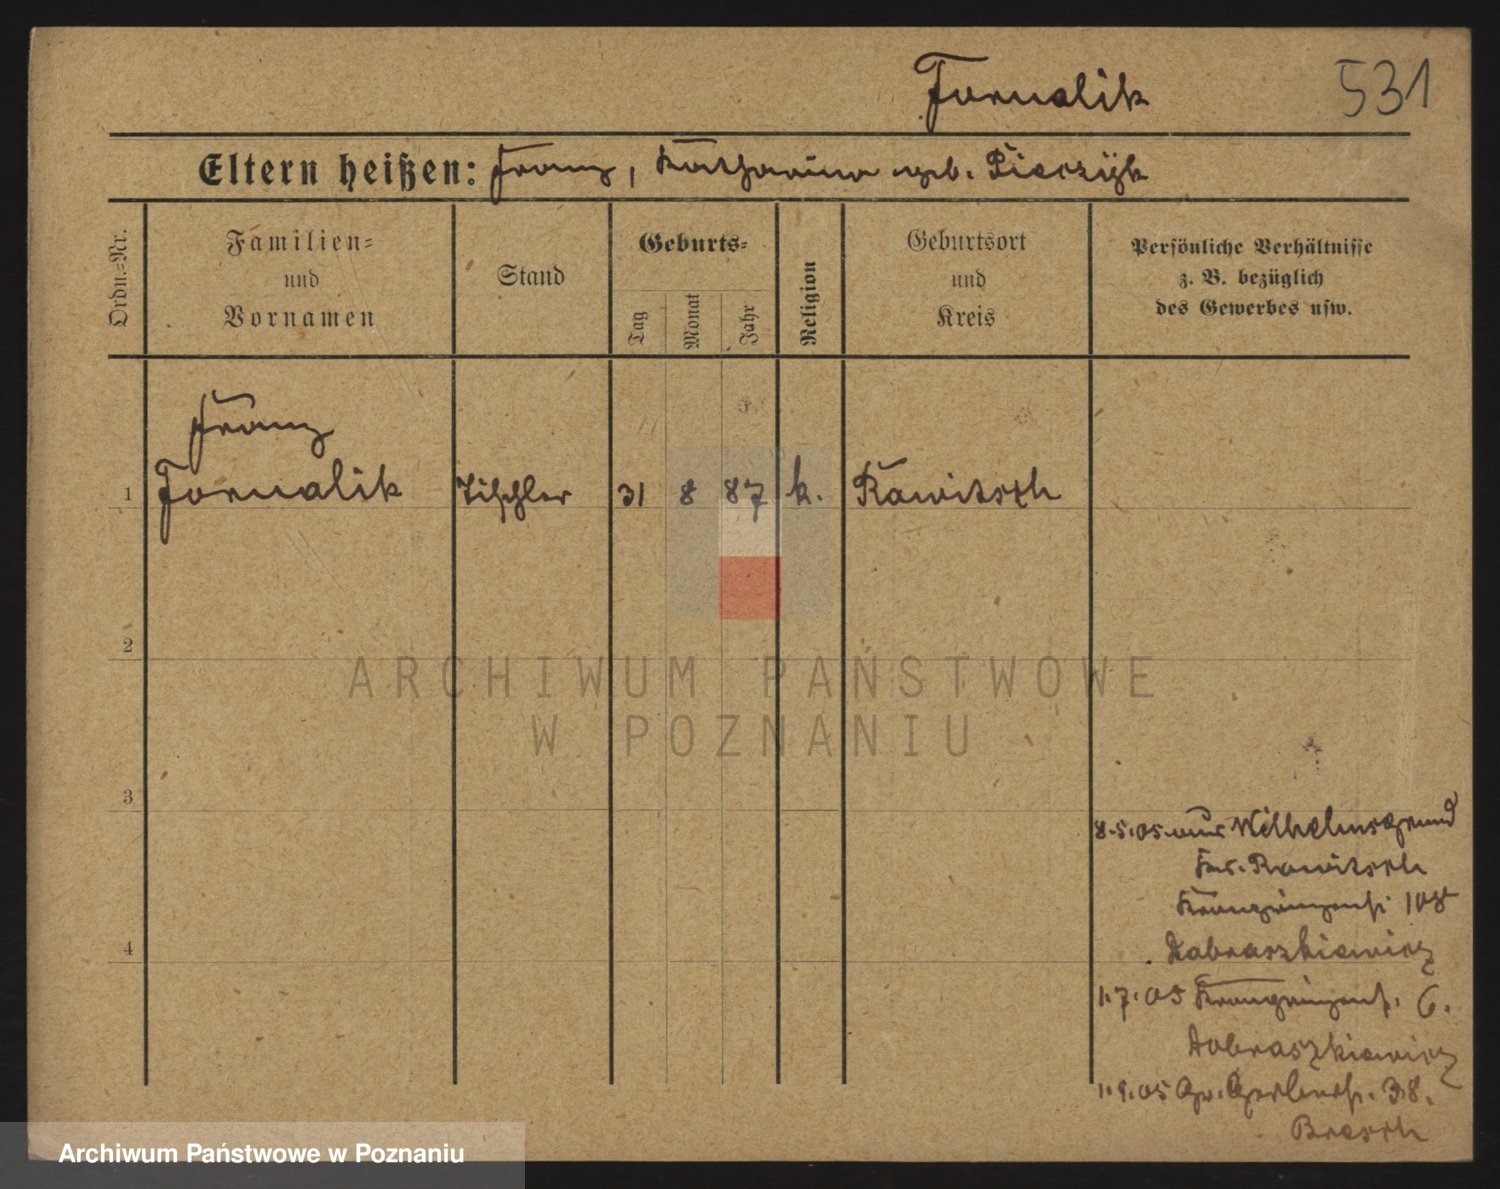 Fornalik
531
Eltern heißen: Franz, Katharina geb. Pieczyk
Ordn.=Nr.
Familien=
und
Vornamen
Stand
Geburts=
Tag
Monat
Jahr
Religion
Geburtsort
und
Kreis
Persönliche Verhältnisse
z. B. bezüglich
des Gewerbes usw.
Franz
1 Fornalik Tischler 31 8 87 k. Rawitsch
2
ARCHIWUM PAŃSTWOWE
W POZNANIU
3
8.5.05 aus Wilhelmsgrund
Kr. Rawitsch
Kronprinzenst. 108
4
Dabraszkiewicz
1.7.05 Kronprinzenst. 6.
Dobraszkiewicz
1.9.05 Gr. Gerberst. 38.
Archiwum Państwowe w Poznaniu